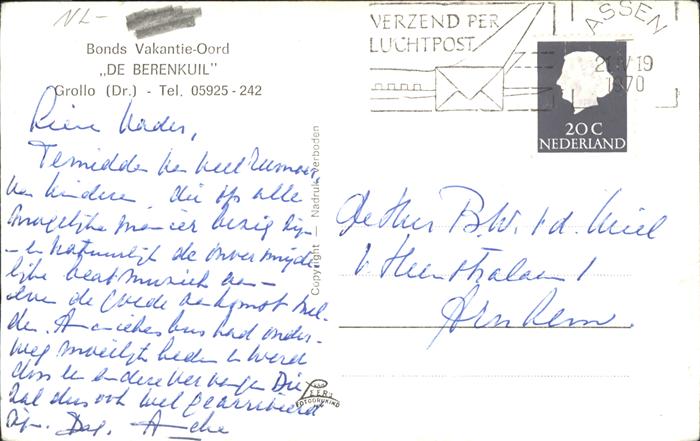 NL-
Bonds Vakantie-Oord
„DE BERENKUIL"
Grollo (Dr.) - Tel. 05925-242
VERZEND PER
LUCHTPOST
ASSEN
21.IV 19
1970
20 C
NEDERLAND
Copyright — Nadruk verboden
Lieve Vader,
Temidden van veel rumoer
van kinderen, die op alle
mogelijke manier bezig zijn
- en natuurlijk de onvermijde-
lijke beatmuziek van-
even de goede aankomst mel-
den. bus had onder-
weg moeilijkheden en werd
dus een andere vervangen. Die
zal dus ook wel gearriveerd
zijn. Dag,
De Heer B.W. v.d.
v. Heemstralaan 1
Arnhem.
LEERS
FOTODRUKIND